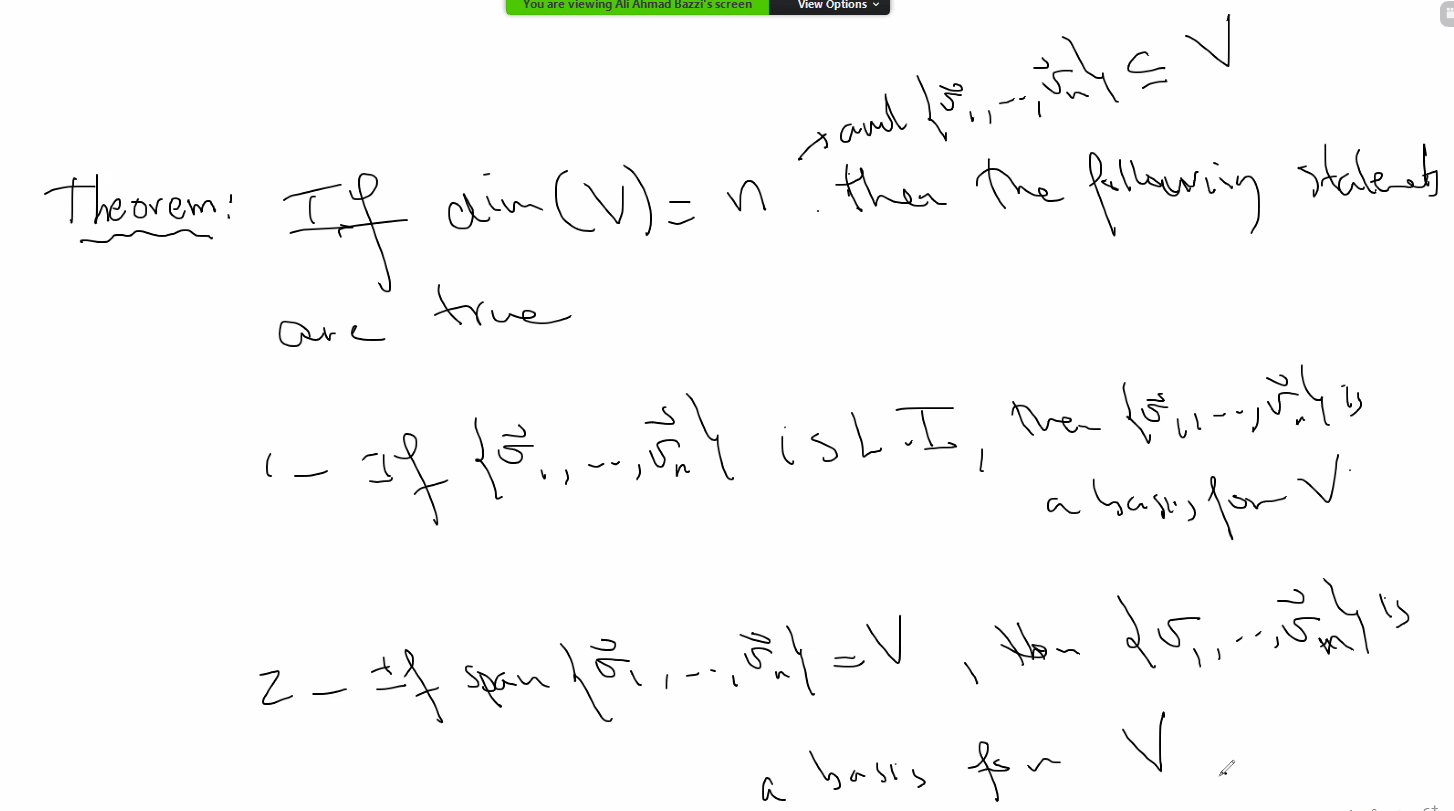 You are viewing Ali Ahmad Bazzi's screen View Options
and {v⃗₁, ..., v⃗ₙ} ⊆ V
Theorem: If dim(V) = n then the following statements
are true
1 - If {v⃗₁, ..., v⃗ₙ} is L.I, then {v⃗₁, ..., v⃗ₙ} is
a basis for V.
2 - If span {v⃗₁, ..., v⃗ₙ} = V, then {v₁, ..., v⃗ₙ} is
a basis for V